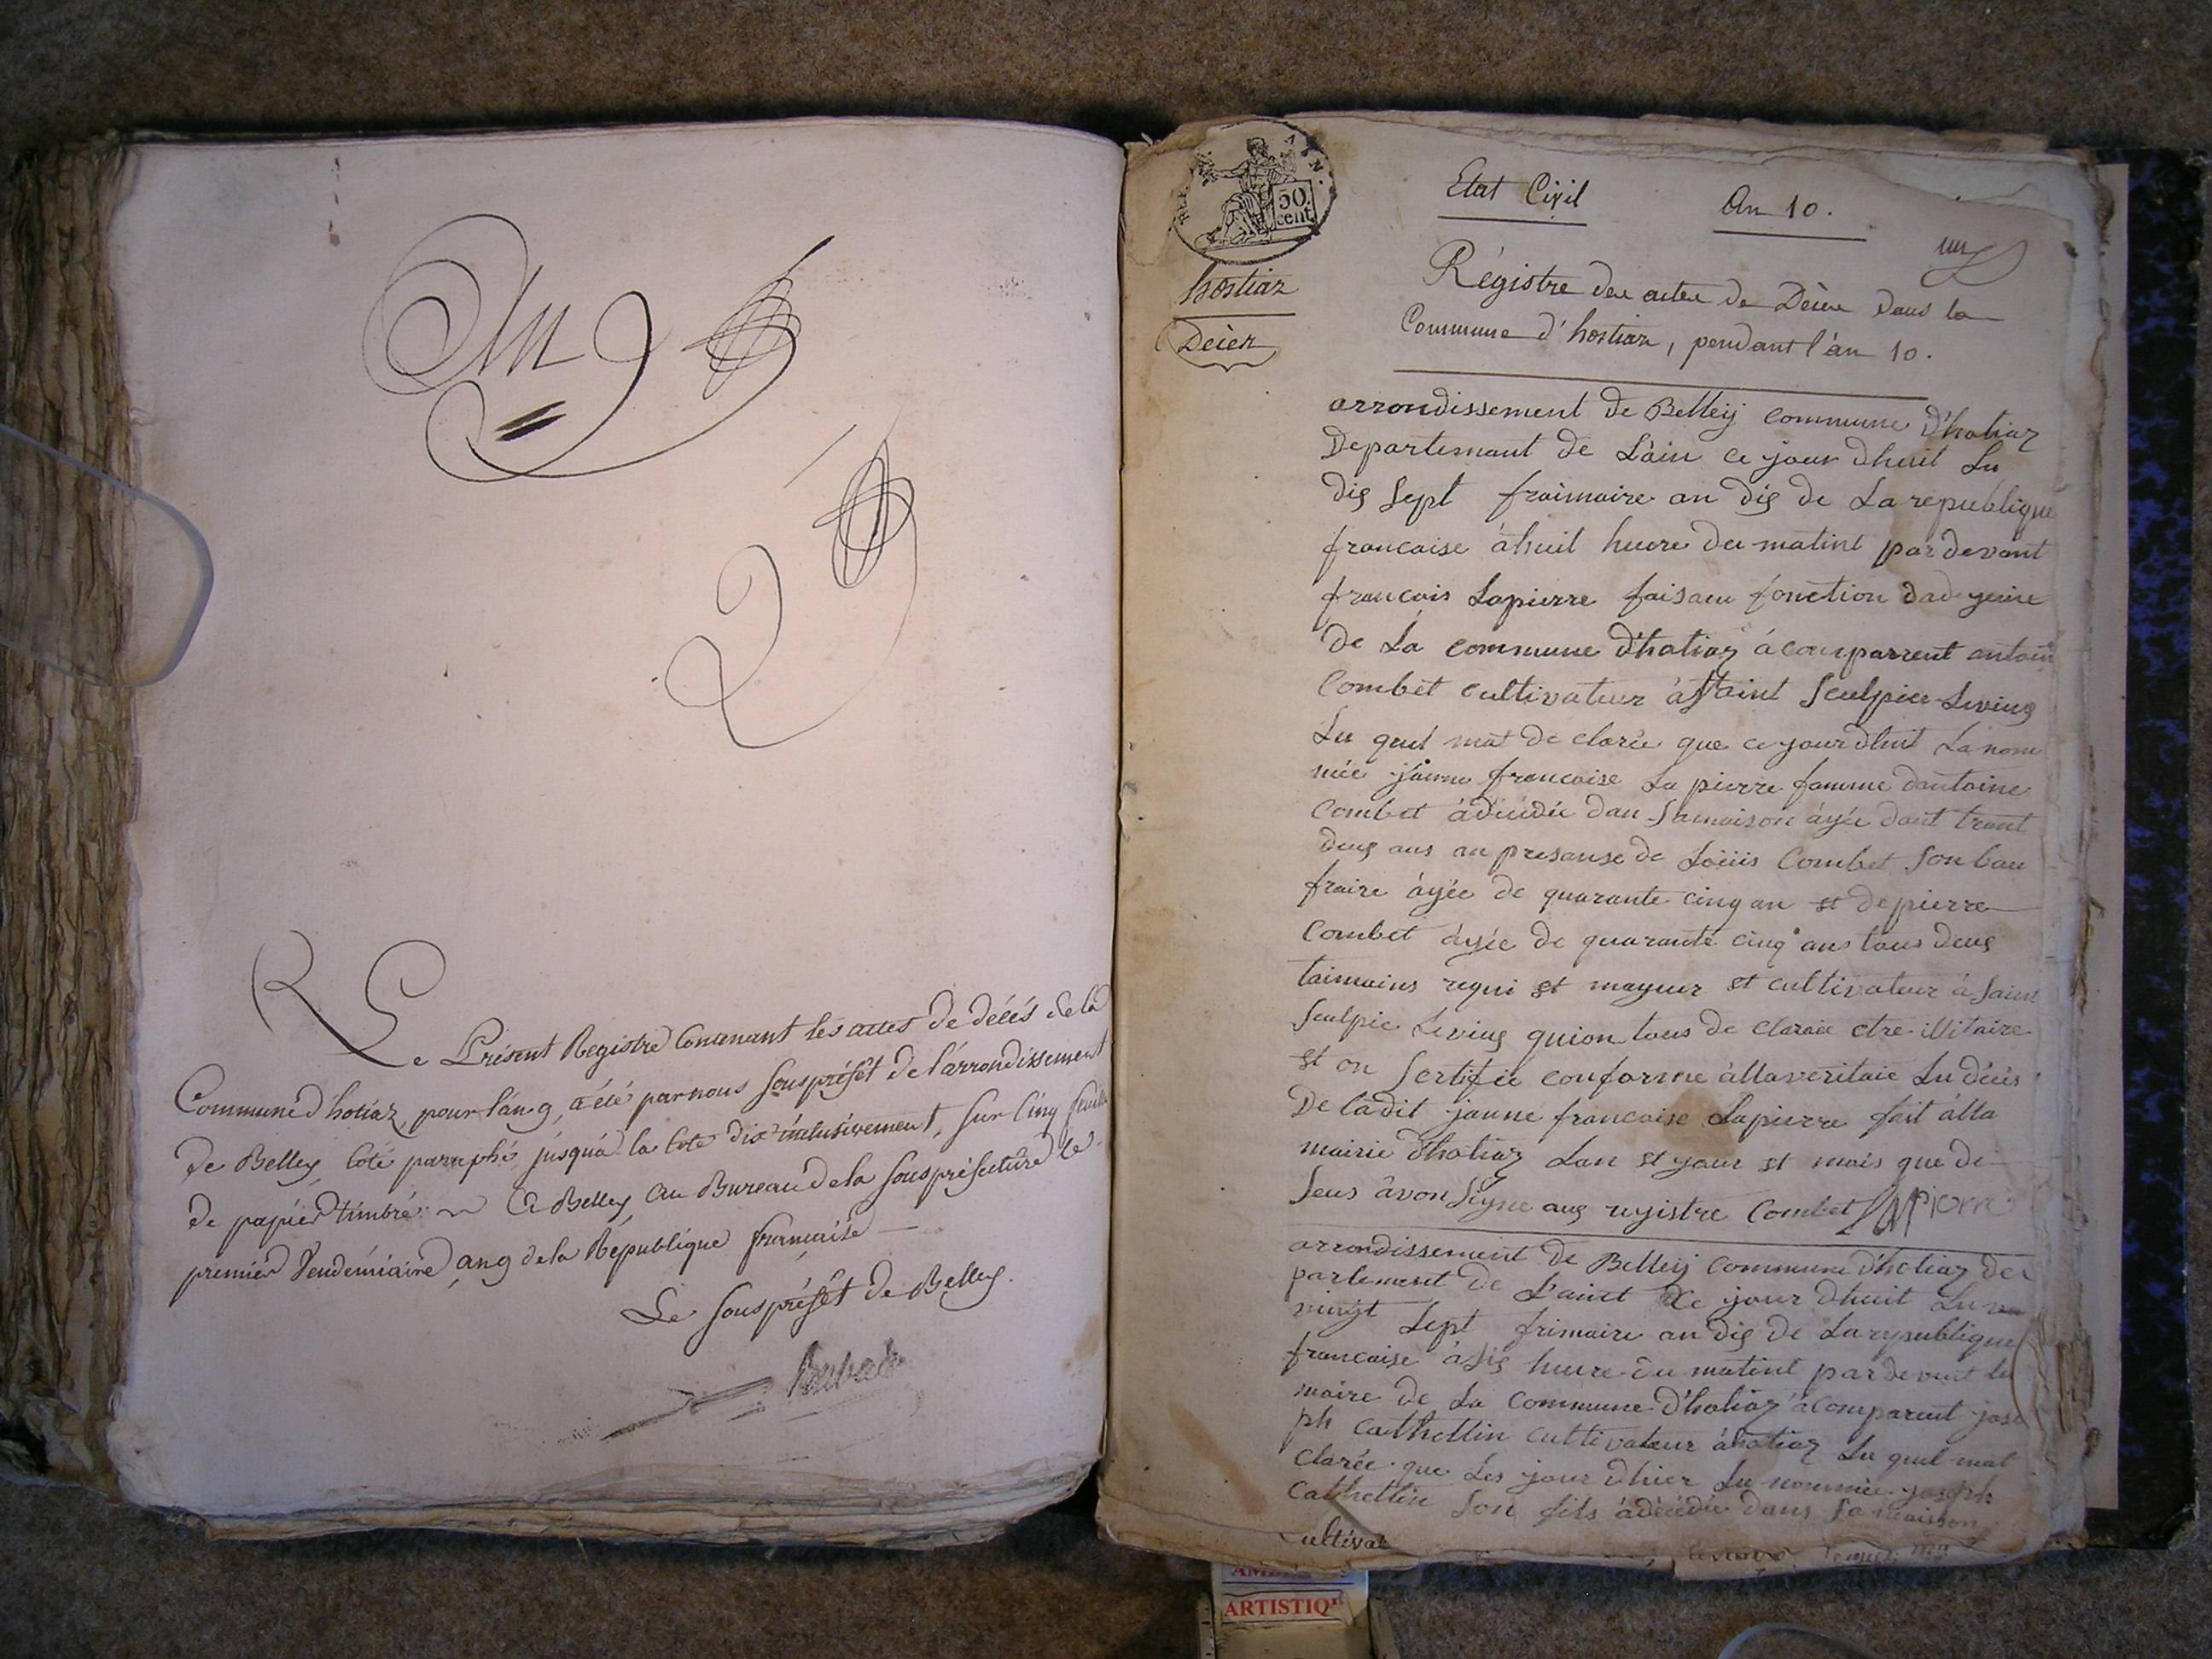 An 9
Le Présent Registre Contenant les actes de décés de la
Commune d'hotiaz, pour l'an 9, a été par nous souspréfét de l'arrondissement
de Belley coté paraphé jusqu'à la cote dix inclusivement, sur Cinq feuilles
de papier timbré. A Belley au Bureau de la souspréfecture le
premier Vendémiaire an 9 de la République française
Le souspréfét de Belley.
50.
cent
Etat Civil An 10.
un
hostiaz
Décès
Régistre des actes de Décès dans la
Commune d'hostiaz, pendant l'an 10.
arrondissement de Belleÿ commune D'hotiaz
Departemant de L'ain ce jour dhuit Lu
dis Sept fraimaire an dis de La republique
francaise à huit heure du matint par devant
francois Lapierre faisam fonction dadgeint
de La commune D'hotiaz á comparrent antoin
Combet cultivateur à Saint Sculpice Levieus
Lu quel mat de clarée que ce jour dhuit La nom
mée janne francoise La pierre famme dantoine
Combet à décédée dan Samaison àgée dant trant
deus ans an presanse de Loüis Combet Son bau
fraire àgée de quarante cinq an et de pierre
Combet àgée de quarante cinq ans tous deus
taimoins requi et mageur et cultivateur à Saint
Sculpie Levieus quion tous de claraée etre illitaire
et on Sertifiée conforme àlla veritaie Lu décés
De la dit janne francoise Lapierre fait àlla
mairie D'hotiaz Lan et jour et mois que de
Seus àvon Signe aus registre Combet Lapierre
arrondissement de Belleÿ commune D'hotiaz de
partement De L'ainct Ce jour dhuit Lu
vingt Sept frimaire an dis de La republique
francaise à Sis heure du matint par devant le
maire de La commune D'hotiaz à comparent jose
ph Cathellin cultivateur à hotiaz Lu quel mat
clarée que Les jour dhier Lu nommée joseph
Cathellin Son fils à décédée dans Sa maison
ultivat
ARTISTIQ